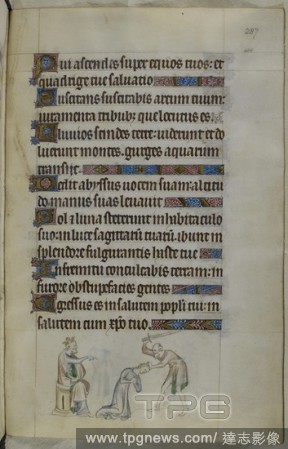 287
Qui ascendes super equos tuos: et
quadrige tue salvatio
Suscitans suscitabis arcum tuum:
iuramenta tribub; que locutus es.
Fluvios scindes terre: viderunt et do
luerunt montes. gurges aquarum
transiit.
Dedit abyssus vocem suam: altitu
do manus suas levavit
Sol & luna steterunt in habitaculo
suo: in luce sagittarū tuarū. ibunt in
splendore fulgurantis haste tue
In fremitu conculcabis terram: in
furore obstupefacies gentes
Egressus es in salutem populi tui: in
salutem cum xp̄o tuo.
TPG
www.tpgnews.com/ 達志影像